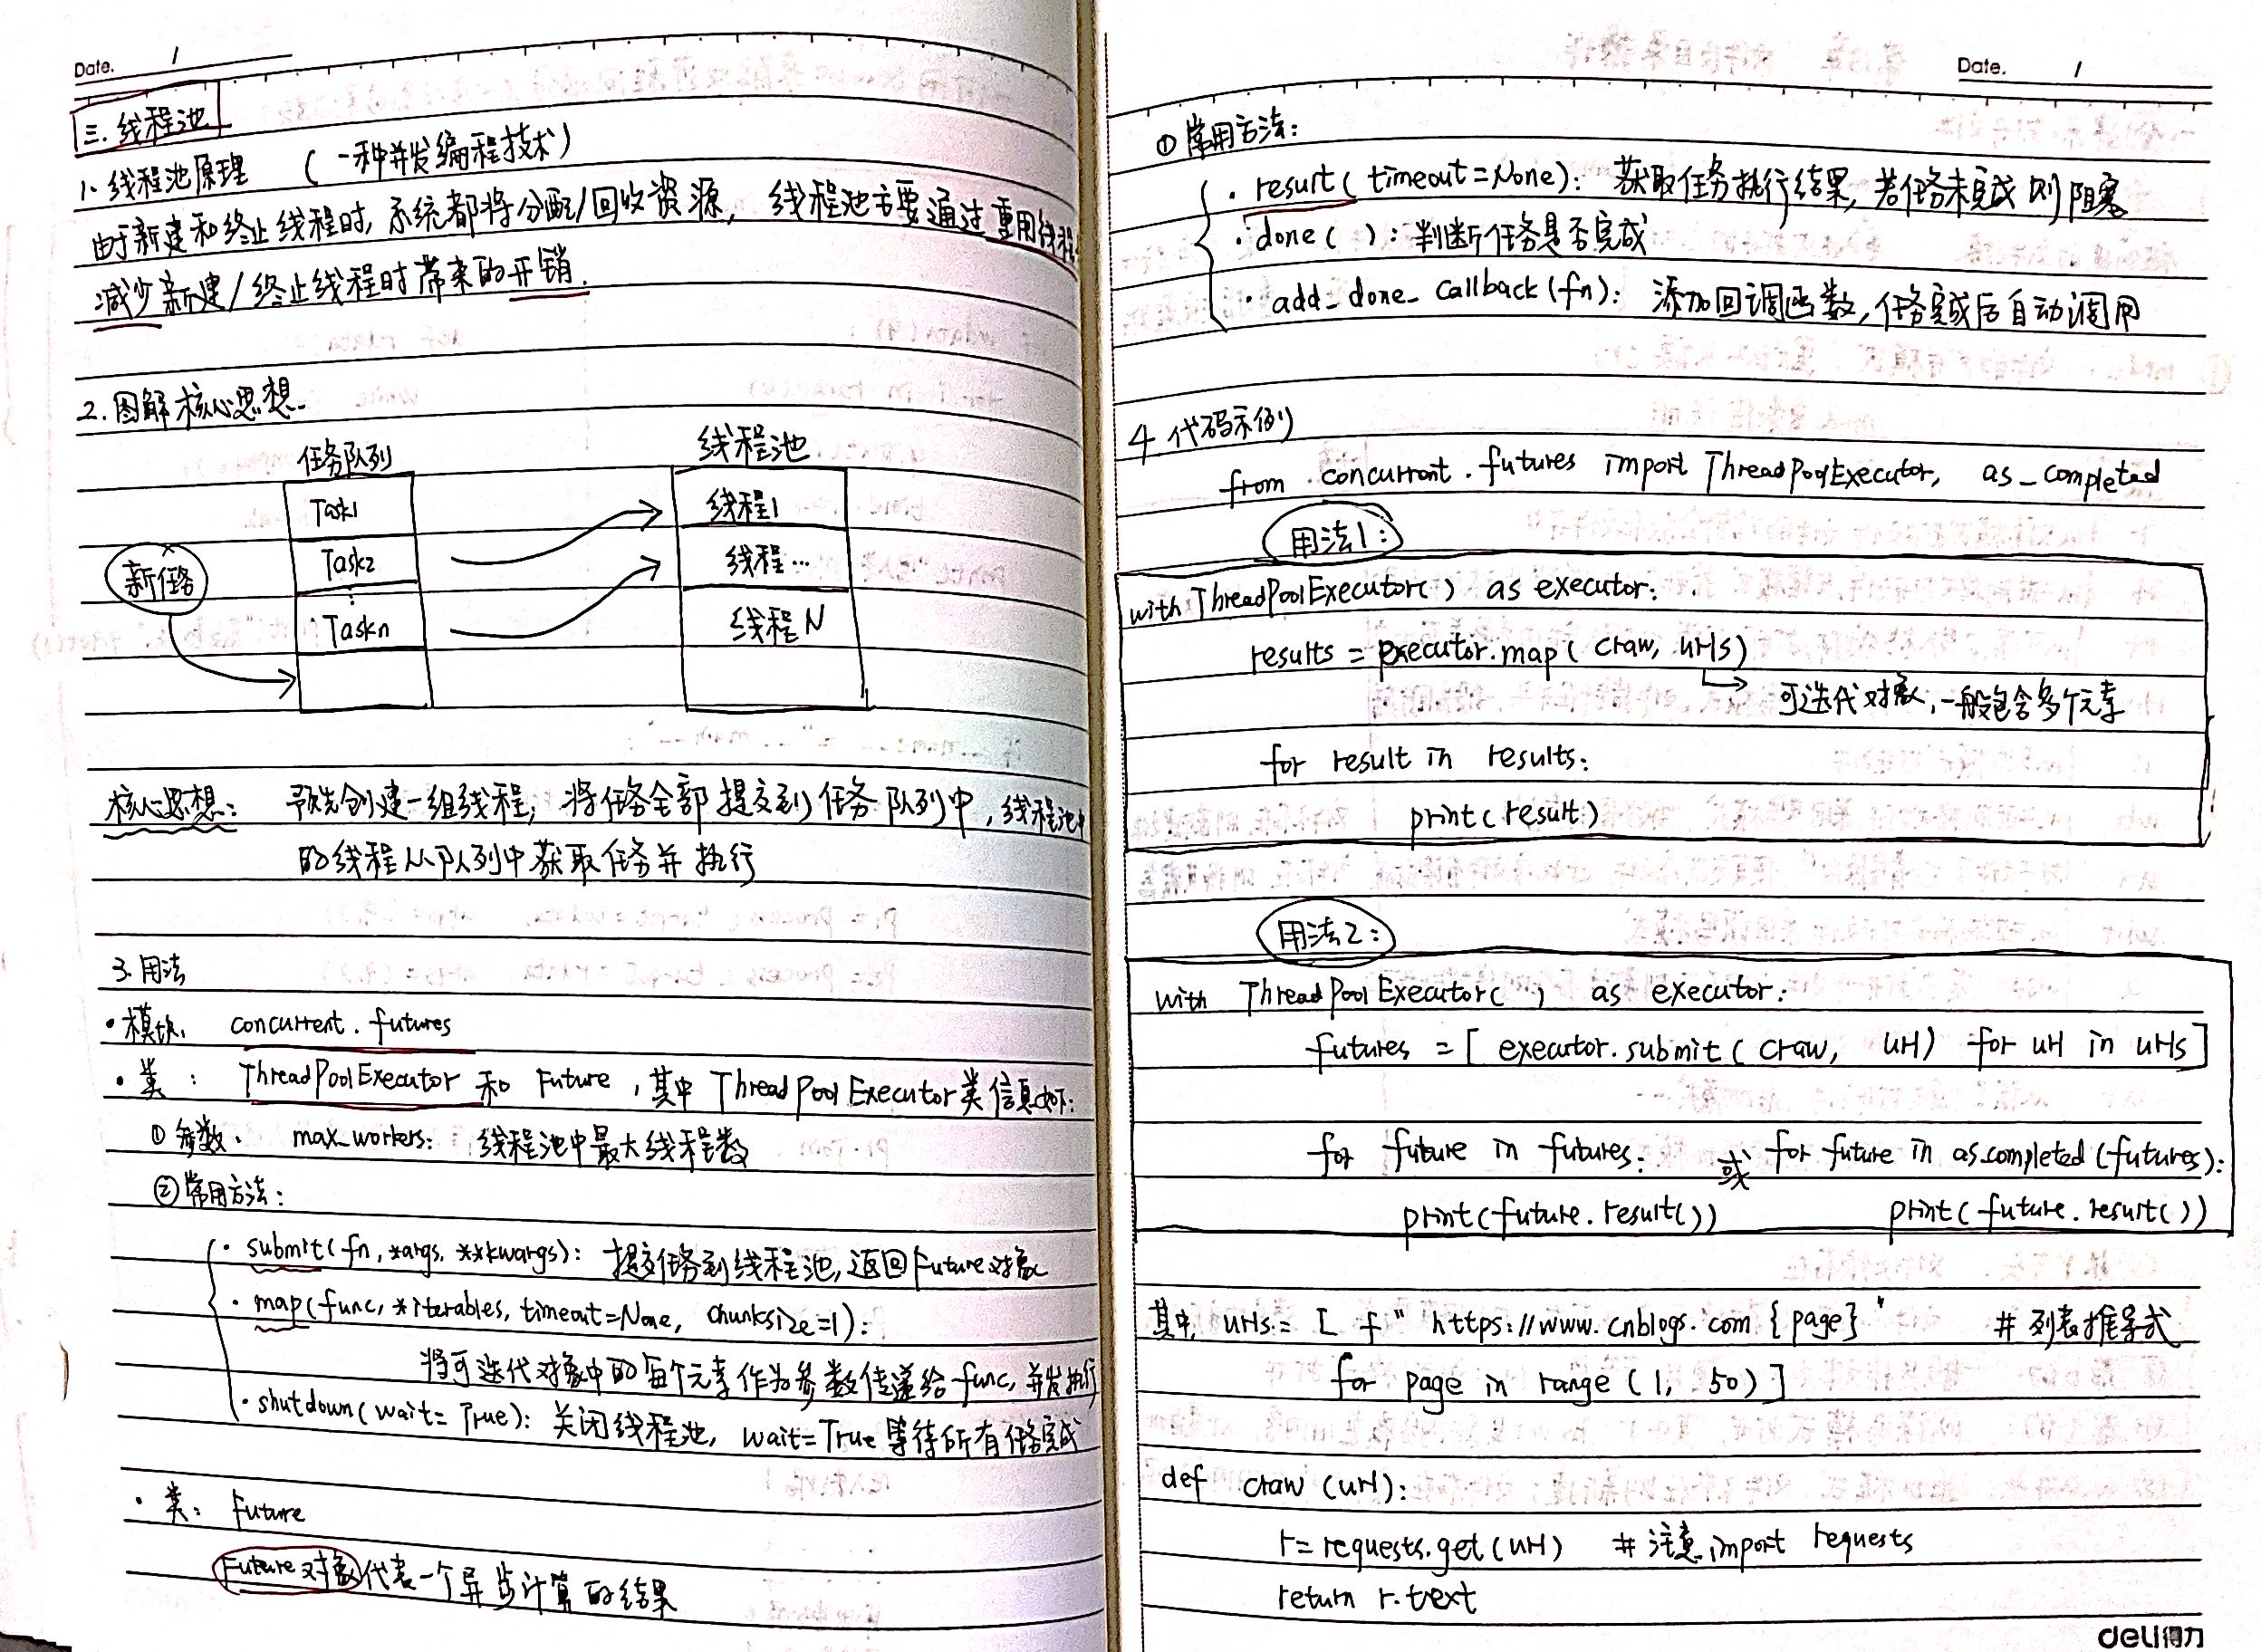 Date. /
三. 线程池
1. 线程池原理 (一种并发编程技术)
由于新建和终止线程时, 系统都将分配/回收资源, 线程池主要通过重用线程
减少新建/终止线程时带来的开销.
2. 图解核心思想.
任务队列 线程池
Task1 线程1
新任务 Task2 线程…
⋮
Taskn 线程N
核心思想: 预先创建一组线程, 将任务全部提交到任务队列中, 线程池中
的线程从队列中获取任务并执行
3. 用法
• 模块: concurrent.futures
• 类: ThreadPoolExecutor 和 Future, 其中 ThreadPoolExecutor类信息如下:
① 参数. max_workers: 线程池中最大线程数
② 常用方法:
• submit(fn, *args, **kwargs): 提交任务到线程池, 返回Future对象
• map(func, *iterables, timeout=None, chunksize=1):
将可迭代对象中的每个元素作为参数传递给func, 并发执行
• shutdown(wait=True): 关闭线程池, wait=True 等待所有任务完成
• 类: Future
Future对象代表一个异步计算的结果
Date. /
① 常用方法:
• result(timeout=None): 获取任务执行结果, 若任务未完成则阻塞
• done( ): 判断任务是否完成
• add_done_callback(fn): 添加回调函数, 任务完成后自动调用
4 代码示例
from concurrent.futures import ThreadPoolExecutor, as_completed
用法1:
with ThreadPoolExecutor() as executor:
results = executor.map( craw, urls)
可迭代对象, 一般包含多个元素
for result in results:
print(result)
用法2:
with ThreadPoolExecutor( ) as executor:
futures = [ executor.submit( craw, url) for url in urls]
for future in futures: 或 for future in as_completed(futures):
print(future.result()) print(future.result())
其中, urls = [ f"https://www.cnblogs.com{page}" # 列表推导式
for page in range(1, 50)]
def craw (url):
r = requests.get(url) # 注意 import requests
return r.text
deli得力